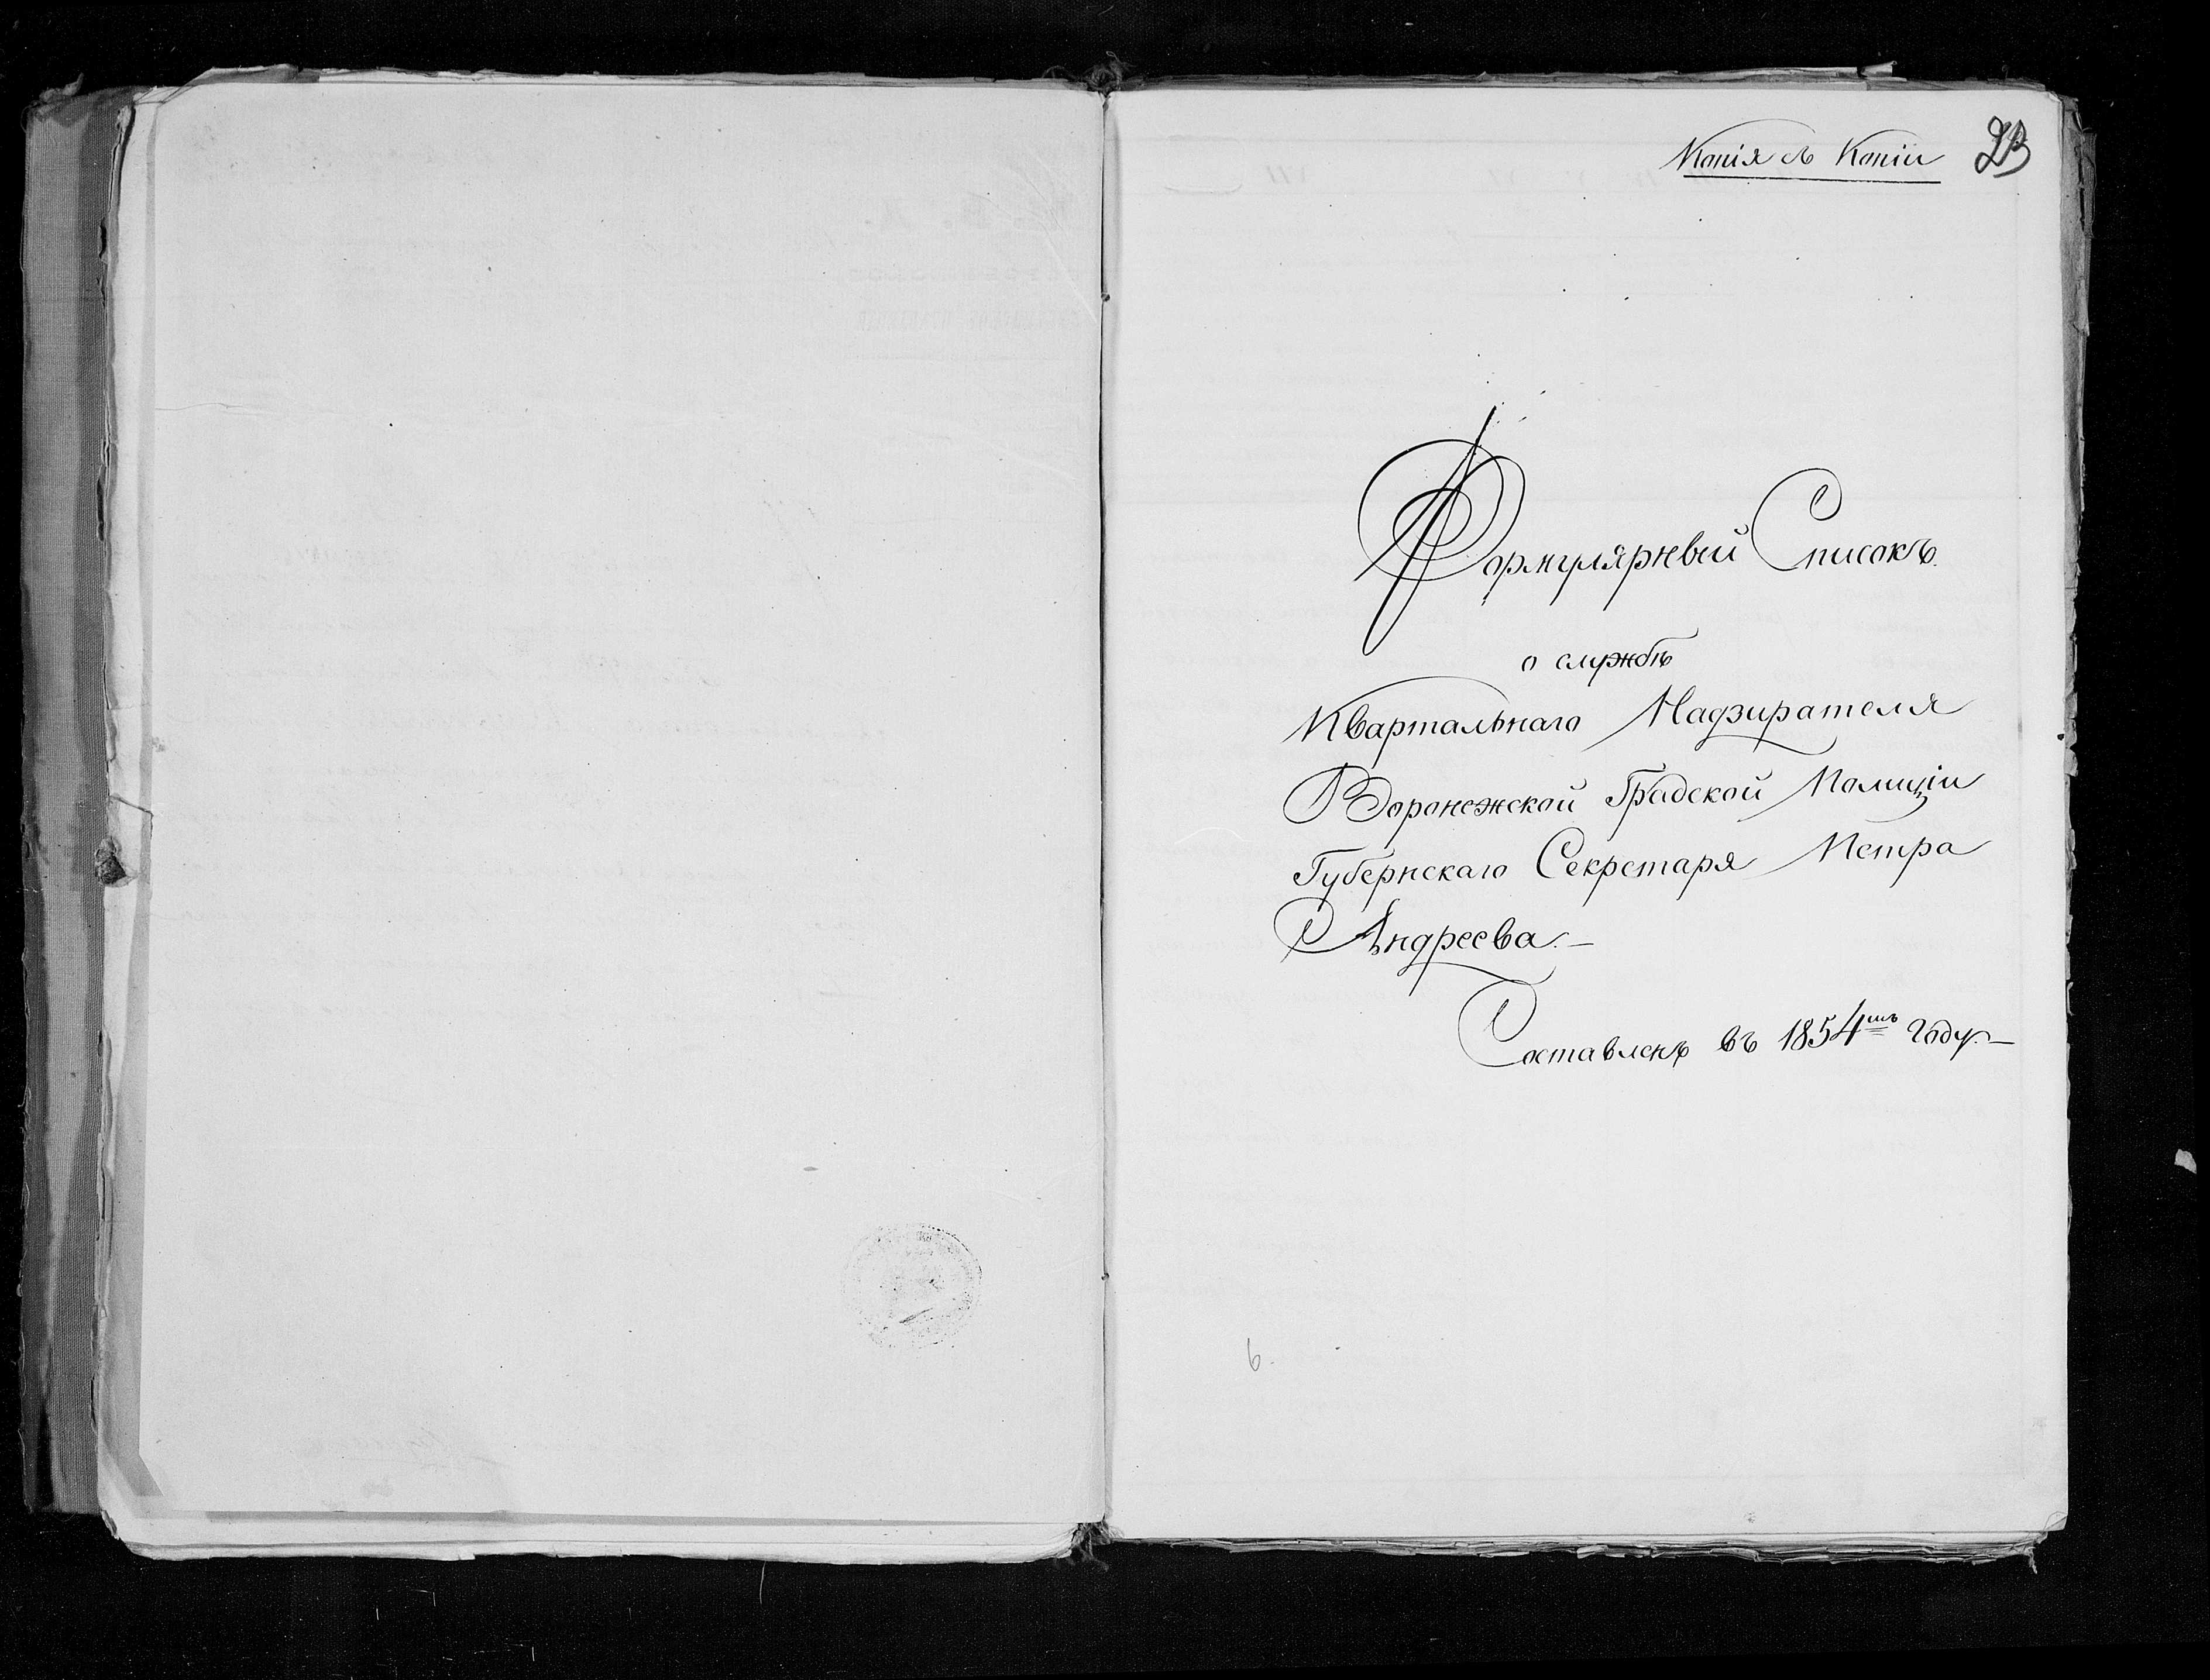 Копія съ Копіи
23
Формулярный Списокъ
о службѣ
Квартальнаго Надзирателя
Воронежской Градской Полиціи
Губернскаго Секретаря Петра
Андреева. —
Составленъ въ 1854мъ году. —
6.